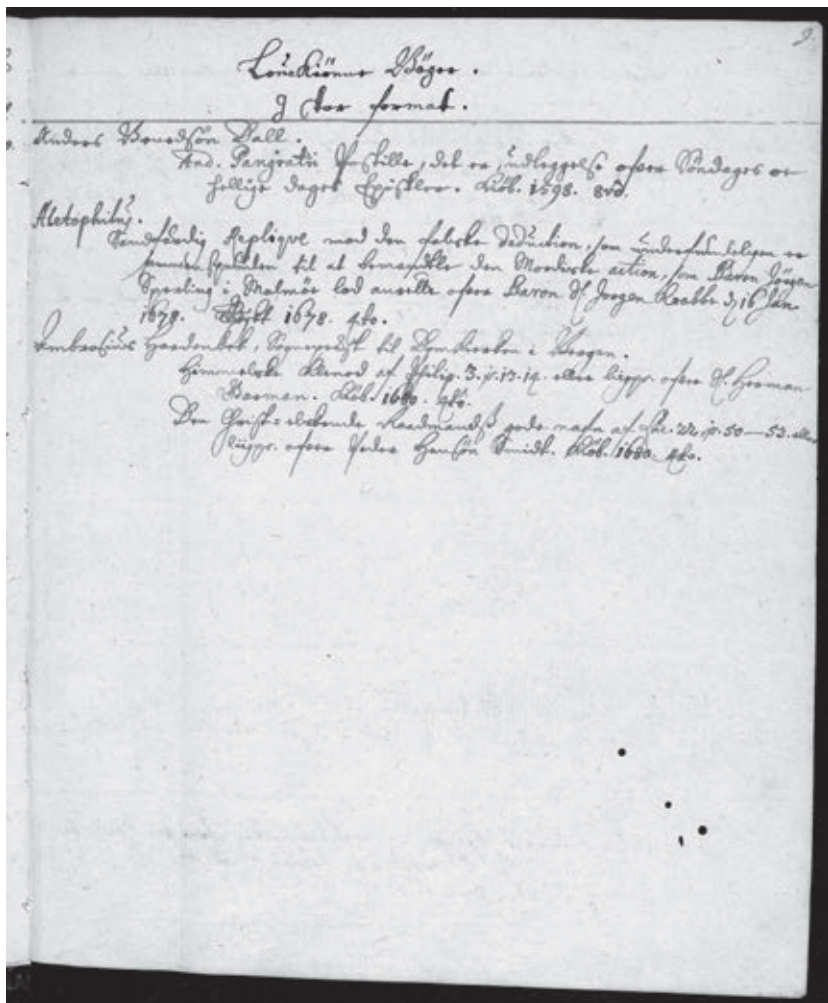 9.
Bøger.
J stor format.
Anders Bendsøn Dall.
And. Pangratii Postille, det er, udleggelse ofver Søndages oc
hellige dages Epistler. Kiøb. 1598. 8vo.
Aletophilus.
Sandfærdig Replique mod den falske deduction, som er
til at den Mordiske action, som Baron Jørgen
Sperling i Malmøe lod anstille ofver Baron Sl. Jørgen Krabbe d. 16 Jan.
1678. 1678. 4to.
Ambrosius Hardenbek, Sogneprest til DomKirken i Bergen.
Himmelske Klenod af Philip. 3. v. 13. 14. eller ligpr. ofver Sl. Herman
Kiøb. 1680. 4to.
Den Raadmands gode nafn af Luc. 23, v. 50—53. eller
ligpr. ofver Peder Hansøn Smidt. Kiøb. 1680. 4to.